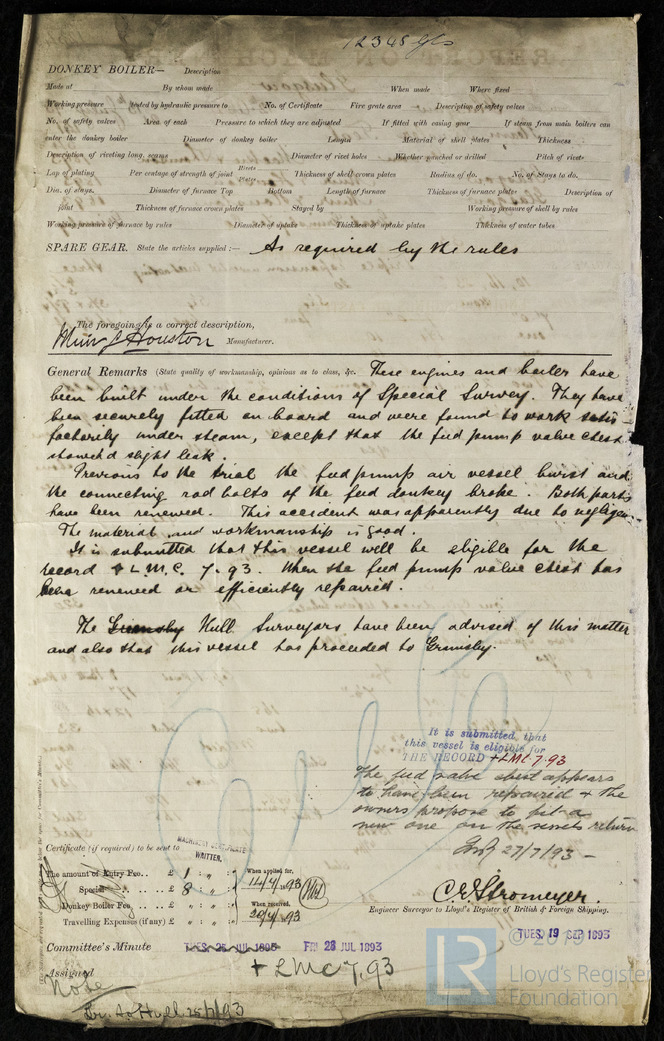 12345 Gls
DONKEY BOILER— Description
Made at By whom made When made Where fixed
Working pressure tested by hydraulic pressure to No. of Certificate Fire grate area Description of safety valves
No. of safety valves Area of each Pressure to which they are adjusted If fitted with easing gear If steam from main boilers can
enter the donkey boiler Diameter of donkey boiler Length Material of shell plates Thickness
Description of riveting long. seams Diameter of rivet holes Whether punched or drilled Pitch of rivets
Lap of plating Per centage of strength of joint Rivets Plates Thickness of shell crown plates Radius of do. No. of Stays to do.
Dia. of stays. Diameter of furnace Top Bottom Length of furnace Thickness of furnace plates Description of
joint Thickness of furnace crown plates Stayed by Working pressure of shell by rules
Working pressure of furnace by rules Diameter of uptake Thickness of uptake plates Thickness of water tubes
SPARE GEAR. State the articles supplied:— As required by the rules
The foregoing is a correct description,
Muir & Houston Manufacturer.
General Remarks (State quality of workmanship, opinions as to class, &c. These engines and boiler have
been built under the conditions of Special Survey. They have
been securely fitted on board and were found to work satis
factorily under steam, except that the feed pump valve chest
showed slight leak.
Previous to the trial the feed pump air vessel burst and
the connecting rod bolts of the feed donkey broke. Both parts
have been renewed. This accident was apparently due to negligen
The material and workmanship is good.
It is submitted that this vessel will be eligible for the
record + L.M.C. 7.93. When the feed pump valve chest has
been renewed or efficiently repaired.
The Greensby Hull Surveyors have been advised of this matter
and also that this vessel has proceeded to Grimsby.
It is submitted, that
this vessel is eligible for
THE RECORD + LMC 7.93
The feed valve chest appears
to have been repaired & the
owners propose to fit a
new one on the vessels return
27/7/93 –
Certificate (if required) to be sent to
MACHINERY CERTIFICATE
WRITTEN.
The amount of Entry Fee.. £ 1 : " : " When applied for,
Special .. .. £ 8 : " : " 14/7/93
Donkey Boiler Fee .. £ " : " : " When received,
Travelling Expenses (if any) £ " : " : " 20/7/93
C. E. Stromeyer.
Engineer Surveyor to Lloyd's Register of British & Foreign Shipping.
Committee's Minute TUES. 25 JUL 1893 FRI 28 JUL 1893 TUES. 19 SEP 1893
Assigned + LMC 7,93
Note
Hull 25/7/93
© 2019
LR
Lloyd's Register
Foundation